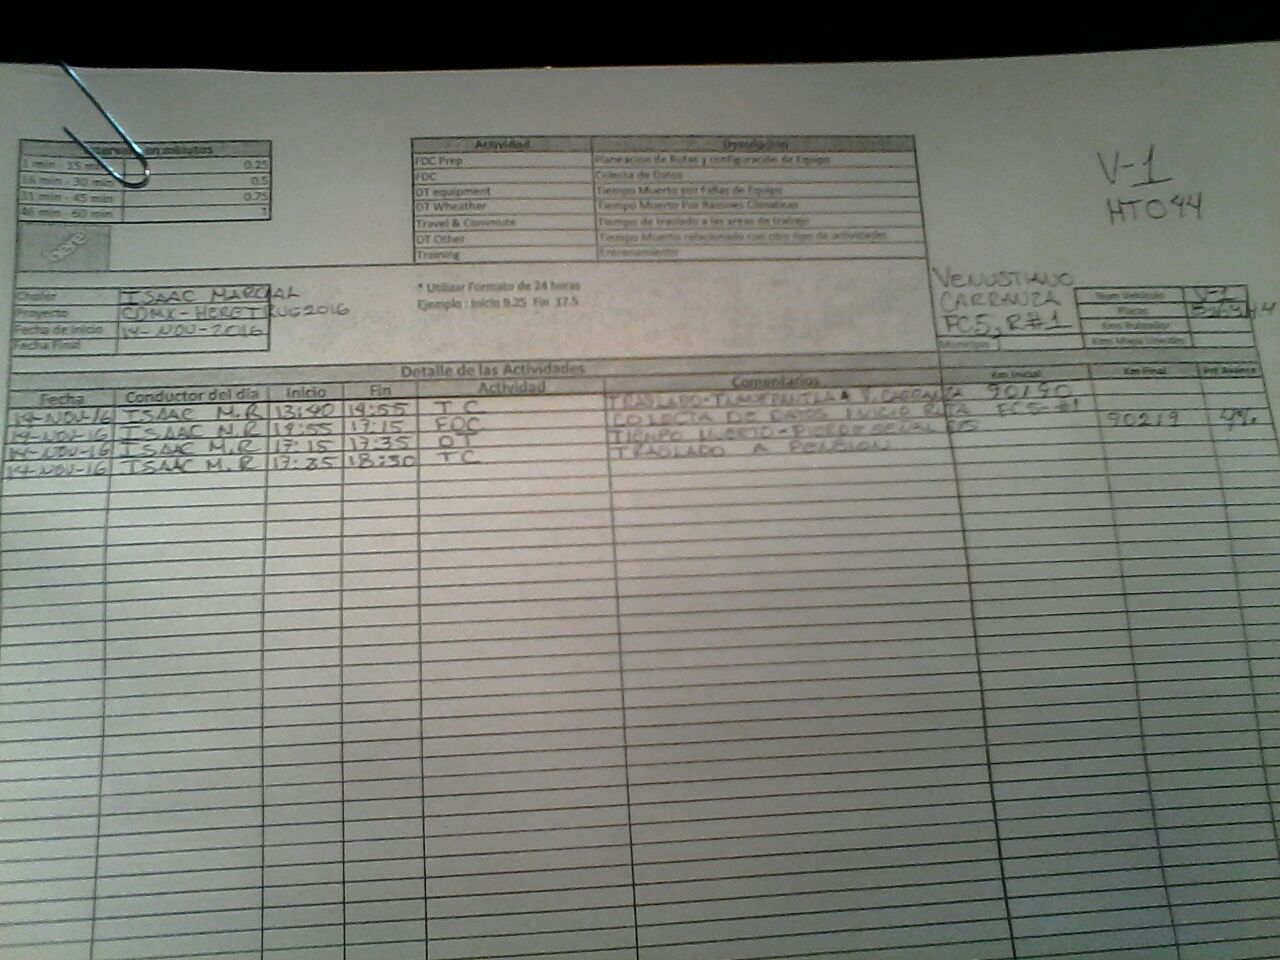 Intervalo en minutos
1 min - 15 min 0.25
16 min - 30 min 0.5
31 min - 45 min 0.75
46 min - 60 min 1
here
Actividad Descripcion
FDC Prep Planeacion de Rutas y configuración de Equipo
FDC Colecta de Datos
DT equipment Tiempo Muerto por fallas de Equipo
DT Wheather Tiempo Muerto Por Razones Climaticas
Travel & Commute Tiempo de traslado a las areas de trabajo
DT Other Tiempo Muerto relacionado con otro tipo de actividades
Training Entrenamiento
V-1
HTO44
* Utilizar Formato de 24 horas
Ejemplo : Inicio 9.25 Fin 17.5
Chofer ISAAC MARCIAL
Proyecto CDMX-HERETRUG2016
Fecha de Inicio 14-NOV-2016
Fecha Final
VENUSTIANO
CARRANZA
FC5, R#1
Num Vehiculo V-1
Placas
Municipio
Detalle de las Actividades
Fecha Conductor del día Inicio Fin Actividad Comentarios Km Inicial Km Final Pct Avance
14-NOV-16 ISAAC M.R 13:40 14:55 TC TRASLADO-TLANEPANTLA A V. CARRANZA 90190
14-NOV-16 ISAAC M.R 14:55 17:15 FDC COLECTA DE DATOS INICIO RUTA FC5-#1 90219 4%
14-NOV-16 ISAAC M.R 17:15 17:35 DT TIEMPO MUERTO - PIERDE SEÑAL
14-NOV-16 ISAAC M.R 17:35 18:30 TC TRASLADO A PENSION